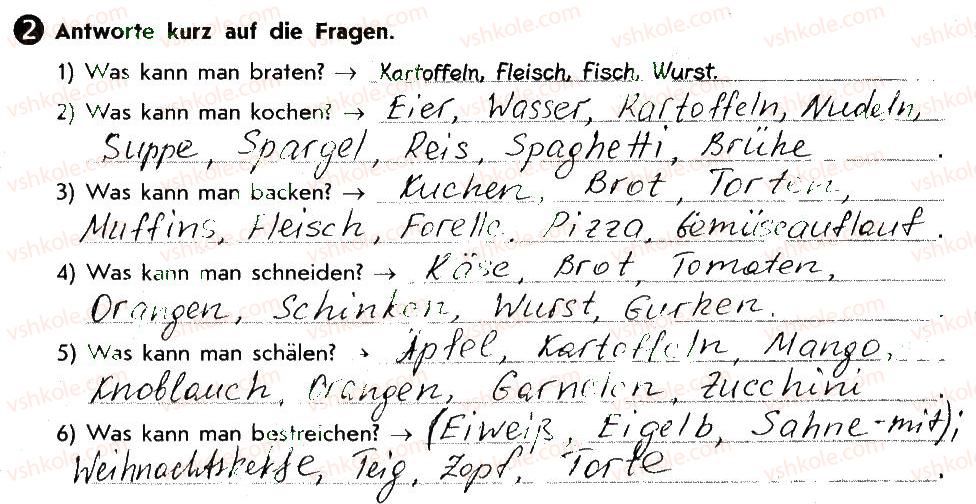 2 Antworte kurz auf die Fragen.
1) Was kann man braten? → Kartoffeln, Fleisch, Fisch, Wurst.
2) Was kann man kochen? → Eier, Wasser, Kartoffeln, Nudeln,
Suppe, Spargel, Reis, Spaghetti, Brühe.
3) Was kann man backen? → Kuchen, Brot, Torten,
Muffins, Fleisch, Forelle, Pizza, Gemüseauflauf.
4) Was kann man schneiden? → Käse, Brot, Tomaten,
Orangen, Schinken, Wurst, Gurken.
5) Was kann man schälen? → Äpfel, Kartoffeln, Mango,
Knoblauch, Orangen, Garnelen, Zucchini.
6) Was kann man bestreichen? → (Eiweiß, Eigelb, Sahne-mit);
Teig, Zopf, Torte.